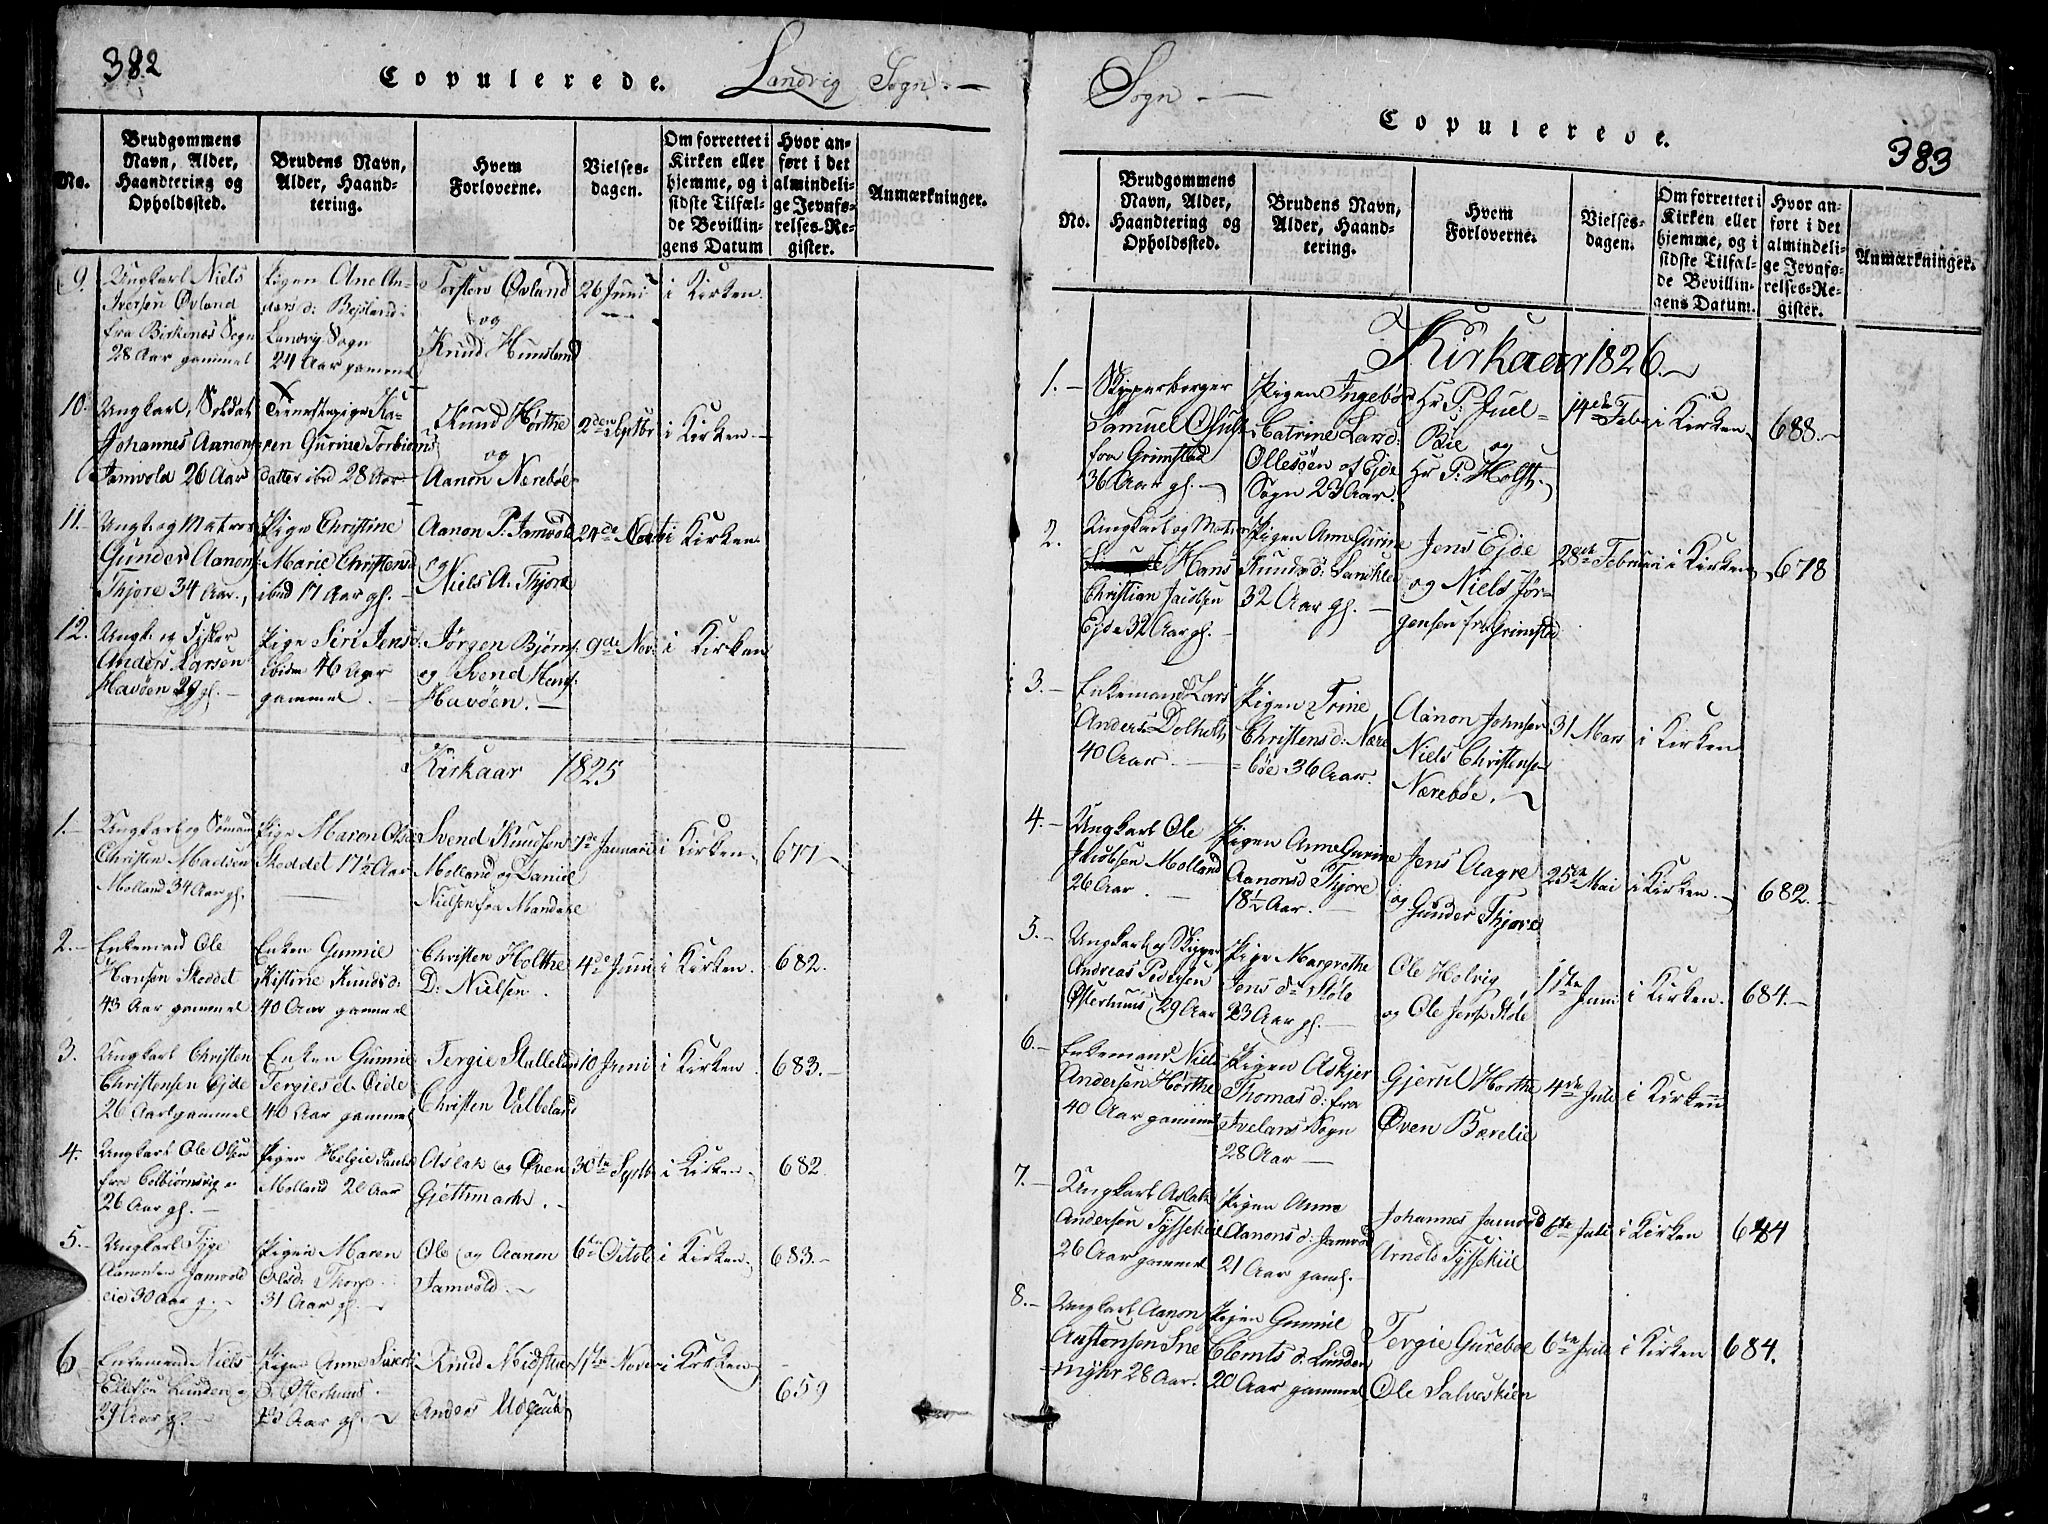 382
Copulerede. Landvig Sogn. —
No.
Brudgommens Navn, Alder, Haandtering og Opholdssted.
Brudens Navn, Alder, Haandtering.
Hvem Forloverne.
Vielsesdagen.
Om forrettet i Kirken eller hjemme, og i sidste Tilfælde Bevillingens Datum
Hvor anført i det almindelige Jevnførelses-Register.
Anmærkninger.
9. Ungkarl Niels
Iversen Øvland
fra Birkenes Sogn
28 Aar gammel
Pigen Ane An-
dersd: Bejsland
Landvig Sogn
24 Aar gammel
Torsten Øvland
og
Knud Hunsland
26 Juni
i Kirken.
10. Ungkarl, Soldat
Johannes Aanons
Jamvold 26 Aar
Tienestepige Ka-
ren Gurine Torbiørns
datter ibid 28 Aar
Knud Hørthe
og
Aanon Nerebøe
2den Septbr
i Kirken —
11. Ungk. og Matros
Gunder Aanons
Thjore 34 Aar.
Pige Christine
Marie Christens
ibid 17 Aar gl.
Aanon P. Jamvold
og
Niels A. Thjore
24de
i Kirken
12. Ungk. og Fisker
Anders Larsen
Havøen 29 gl. —
Pige Siri Jensd
ibidm 46 Aar
gammel. —
Jørgen Bjørns
og Svend
Havøen. —
9de Nov.
i Kirken
Kirkaar 1825
1. — Ungkarl og Sømand
Christen Madsen
Molland 34 Aar gl.
Pige Maren Olsd
Skeddet 17½ Aar
Svend Knudsen
Molland og Daniel
Nielsen fra Mandahl
7de Januari
i Kirken
677
2. — Enkemand Ole
Hansen Skeddet
43 Aar gammel
Enken Gunnil
Kistine Knudsd:
40 Aar gammel
Christen Holthe
D: Nielsen.
4de Juni
i Kirken.
682.
3. Ungkarl Christen
Christensen Ejde
26 Aar gammel
Enken Gunnil
Tergiesd. Eide
40 Aar gammel
Tergie Stalleland
Christen Valbeland
10 Juni
i Kirken.
683. —
4. Ungkarl Ole Olsen
fra Colbiørnsvig
26 Aar gl. —
Pigen Helgie Pauls
Molland 20 Aar
Aslak og Øven
Gjethmark. —
30te Septb
i Kirken
682
5. — Ungkarl Tyge
Aanonsen Jamvold
30 Aar g. —
Pigen Maren
Olsd: Thore
31 Aar gl. —
Ole og Aanon
Jamvold. —
6te Octob
i Kirken
683. —
6 Enkemand Niels
Ellefsen Lunden
29 Aar gl. —
Pigen Anne Sivert
d. Østerhuus
23 Aar gl. —
Knud
Anders
17de Nover
i Kirken
659
Sogn. —
Copulerede.
383
No.
Brudgommens Navn, Alder, Haandtering og Opholdssted.
Brudens Navn, Alder, Haandtering.
Hvem Forloverne.
Vielsesdagen.
Om forrettet i Kirken eller hjemme, og i sidste Tilfælde Bevillingens Datum.
Hvor anført i det almindelige Jevnførelses-Register.
Anmærkninger.
Kirkaar 1826. —
1. — Skipperborger
Samuel
fra Grimstad
36 Aar gl. —
Pigen Ingebor
Catrine Lassd:
Ollesøen af Ejde
Sogn 23 Aar.
Hr P. Juel
Bie og
Hr P: Holst.
14de Febr
i Kirken
688. —
2. Ungkarl og Matros
Hans
Christian Jacobsen
Ejde 32 Aar gl. —
Pigen Anne Gurine
Knudsd:
32 Aar gl. —
Jens Ejde
og Niels Jør-
gensen fra Grimsta
28de Februari
i Kirken
678
3. — Enkemand Lars
Anders Dolholt
40 Aar. —
Pigen Trine
Christensd: Nære
bøe 36 Aar.
Aanon Johnsen
Niels Christensen
Nærebøe.
31 Mars
i Kirken
4. — Ungkarl Ole
Jacobsen Molland
26 Aar. —
Pigen Anne Gurine
Aanonsd Thjore
18½ Aar. —
Jens Aagre
og
Gunder Thjore
25de Mai
i Kirken.
682. —
5. — Ungkarl og Skipper
Andreas Pedersen
Østerhuus 29 Aar
Pige Margrethe
Jensd Støle
23 Aar gl. —
Ole Holvig
og Ole Jens Støle
1ste Juni
i Kirken.
684. —
6. — Enkemand Niels
Andersen Hørthe
40 Aar gammel
Pigen Askjer
Thomasd: fra
Ivelans Sogn
28 Aar —
Gjerul Horthe
Øven Bærelie
4de Juli
i Kirken
7. — Ungkarl Aslak
Andersen Tysseküil
26 Aar gammel
Pigen Anne
Aanonsd: Jamvold
21 Aar gaml. —
Johannes Jamvold
Arnold Tysseküil
6te Juli
i Kirken
684
8. — Ungkarl Aanon
Austensen Sne
myhr 28 Aar.
Pigen Gunnil
Clemts d: Lunden
20 Aar gammel
Tergie Gurebøe
Ole Salveskien
6te Juli
i Kirken
684.